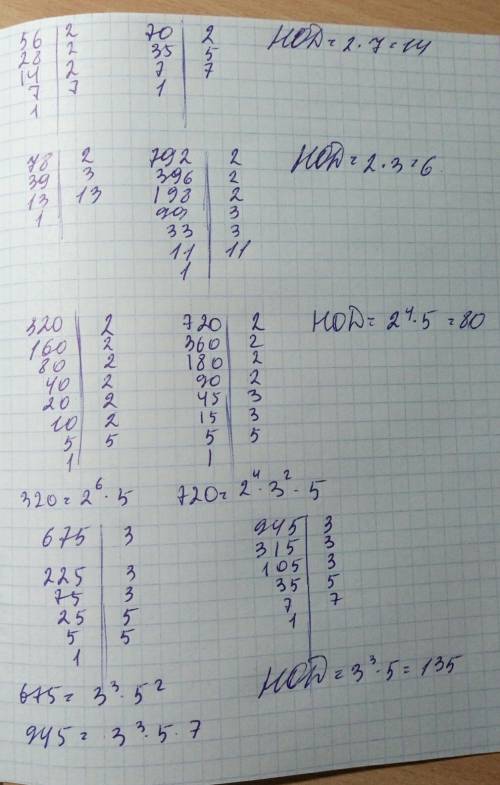 56 | 2 70 | 2 НОД = 2 · 7 = 14
28 | 2 35 | 5
14 | 2 7 | 7
7 | 7 1 |
1 |
78 | 2 792 | 2 НОД = 2 · 3 = 6
39 | 3 396 | 2
13 | 13 198 | 2
1 | 99 | 3
33 | 3
11 | 11
1 |
320 | 2 720 | 2 НОД = 2⁴ · 5 = 80
160 | 2 360 | 2
80 | 2 180 | 2
40 | 2 90 | 2
20 | 2 45 | 3
10 | 2 15 | 3
5 | 5 5 | 5
1 | 1 |
320 = 2⁶ · 5 720 = 2⁴ · 3² · 5
675 | 3 945 | 3
225 | 3 315 | 3
75 | 3 105 | 3
25 | 5 35 | 5
5 | 5 7 | 7
1 | 1 |
675 = 3³ · 5² НОД = 3³ · 5 = 135
945 = 3³ · 5 · 7